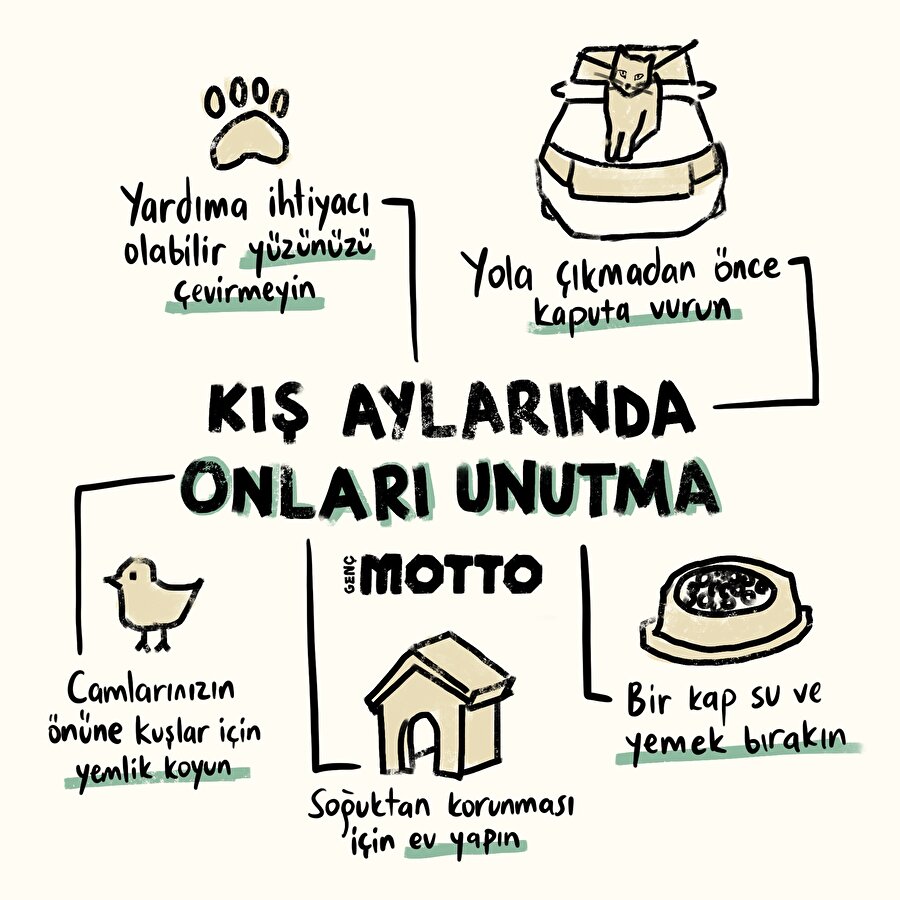 Yardıma ihtiyacı
olabilir yüzünüzü
çevirmeyin
Yola çıkmadan önce
kaputa vurun
KIŞ AYLARINDA
ONLARI UNUTMA
GENÇ MOTTO
Camlarınızın
önüne kuşlar için
yemlik koyun
Soğuktan korunması
için ev yapın
Bir kap su ve
yemek bırakın